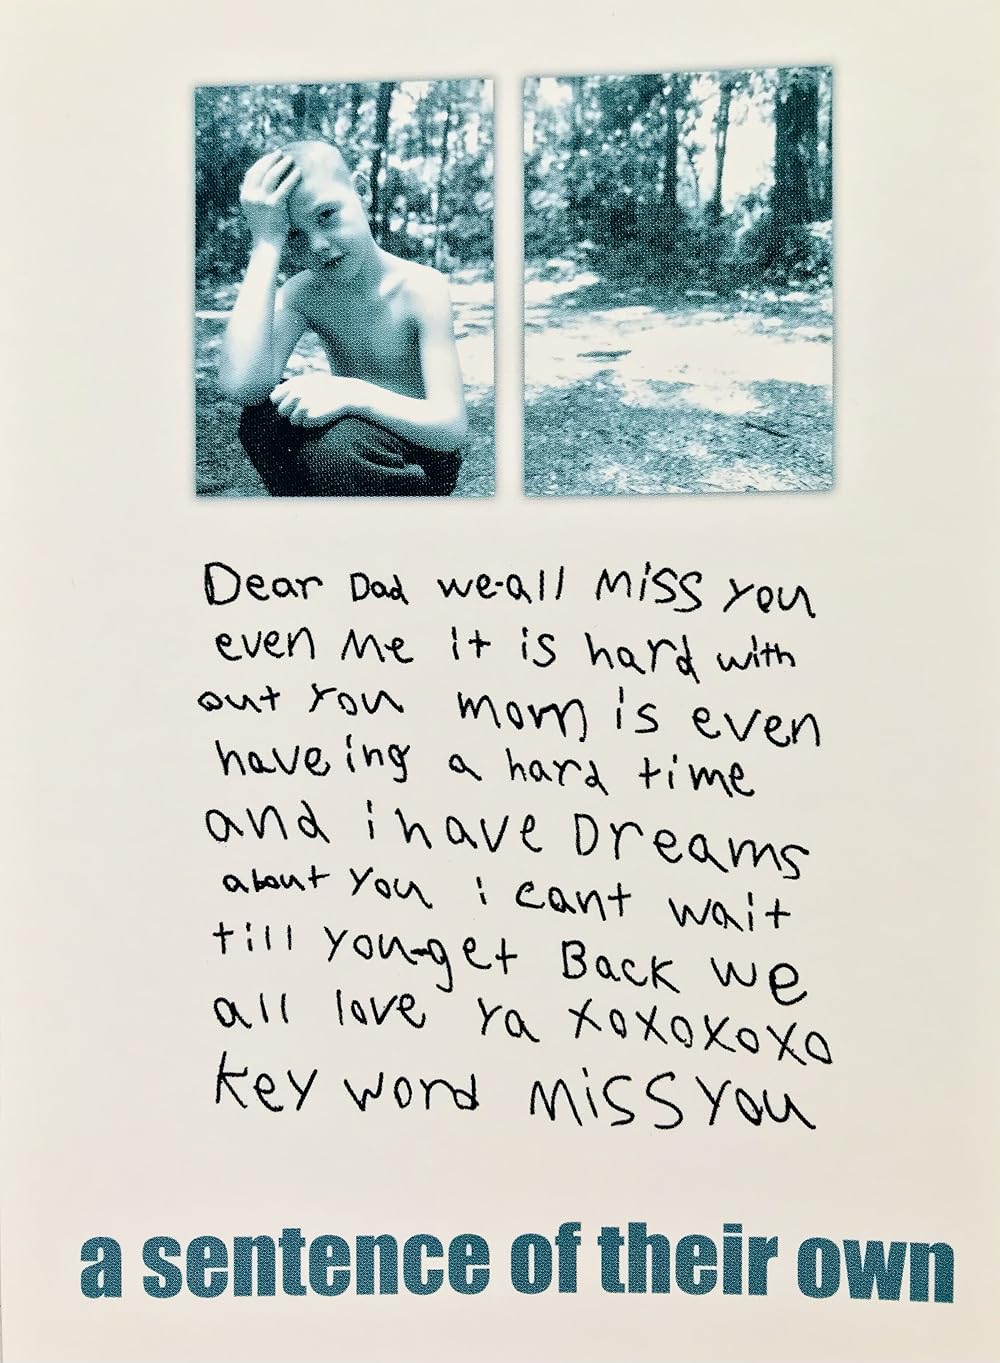 Dear Dad we-all MiSS you
even Me it is hard with
out you mom is even
haveing a hard time
and i have Dreams
about You i cant wait
till you-get Back we
all love ya XoXoXoXo
Key word MiSS You
a sentence of their own